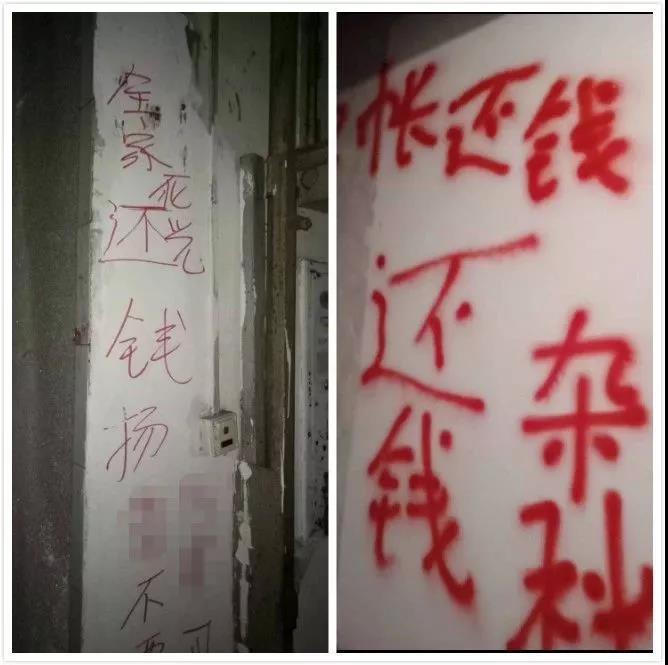 全家死光
还钱扬
不
帐还钱
还钱
杂种